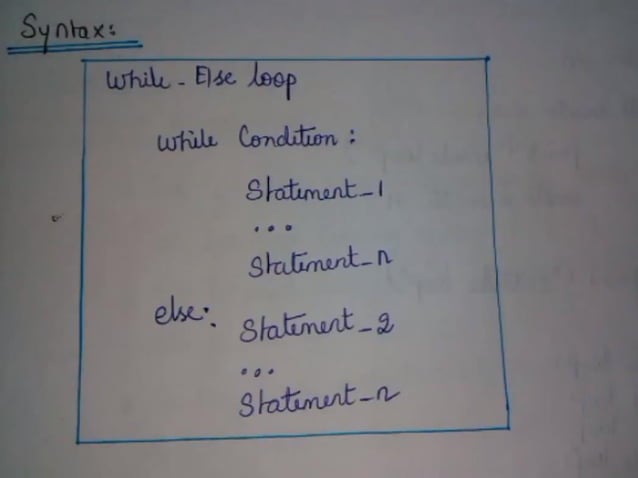 Syntax:
While - Else loop
while Condition :
Statement_1
...
Statement_n
else:
Statement_2
...
Statement_n